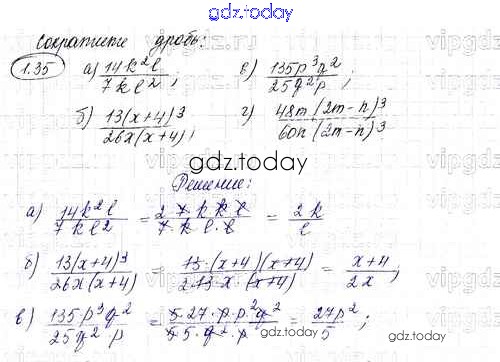 gdz.today
Сократите дробь:
1.35 а) 14k²l / 7kl²; в) 135p³q² / 25q²p;
б) 13(x+4)³ / 26x(x+4); г) 48m(2m-n)³ / 60n(2m-n)³
gdz.today
Решение:
а) 14k²l / 7kl² = 2·7·k·k·l / 7·k·l·l = 2k / l
б) 13(x+4)³ / 26x(x+4) = 13·(x+4)(x+4) / 2·13·x·(x+4) = x+4 / 2x;
в) 135p³q² / 25q²·p = 5·27·p·p²q² / 5·5·q²·p = 27p² / 5;
gdz.today
gdz.today